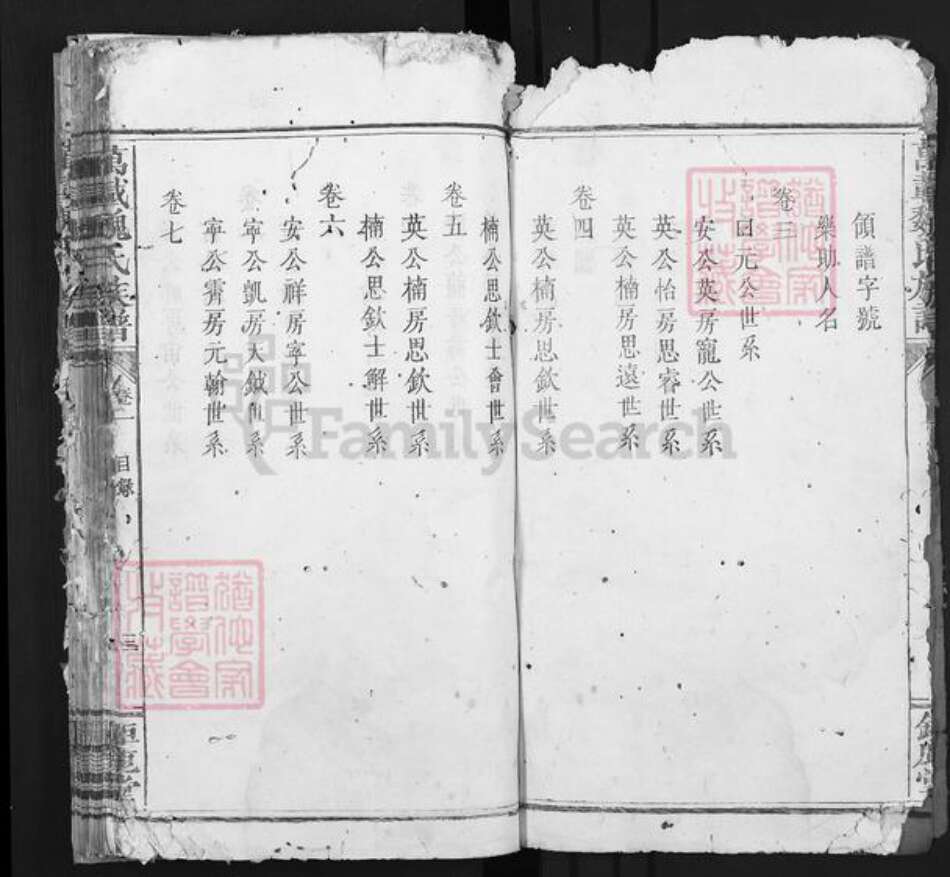 領譜字號
樂助人名
卷三
曰元公世系
安公英房寵公世系
英公怡房思睿世系
英公楠房思遠世系
卷四
英公楠房思欽世系
楠公思欽士會世系
卷五
英公楠房思欽世系
楠公思欽士解世系
卷六
安公祥房寧公世系
寧公凱房大鉞世系
寧公霽房元翰世系
卷七
萬載魏氏族譜
目錄
三
鉅鹿堂
FamilySearch
譜學會